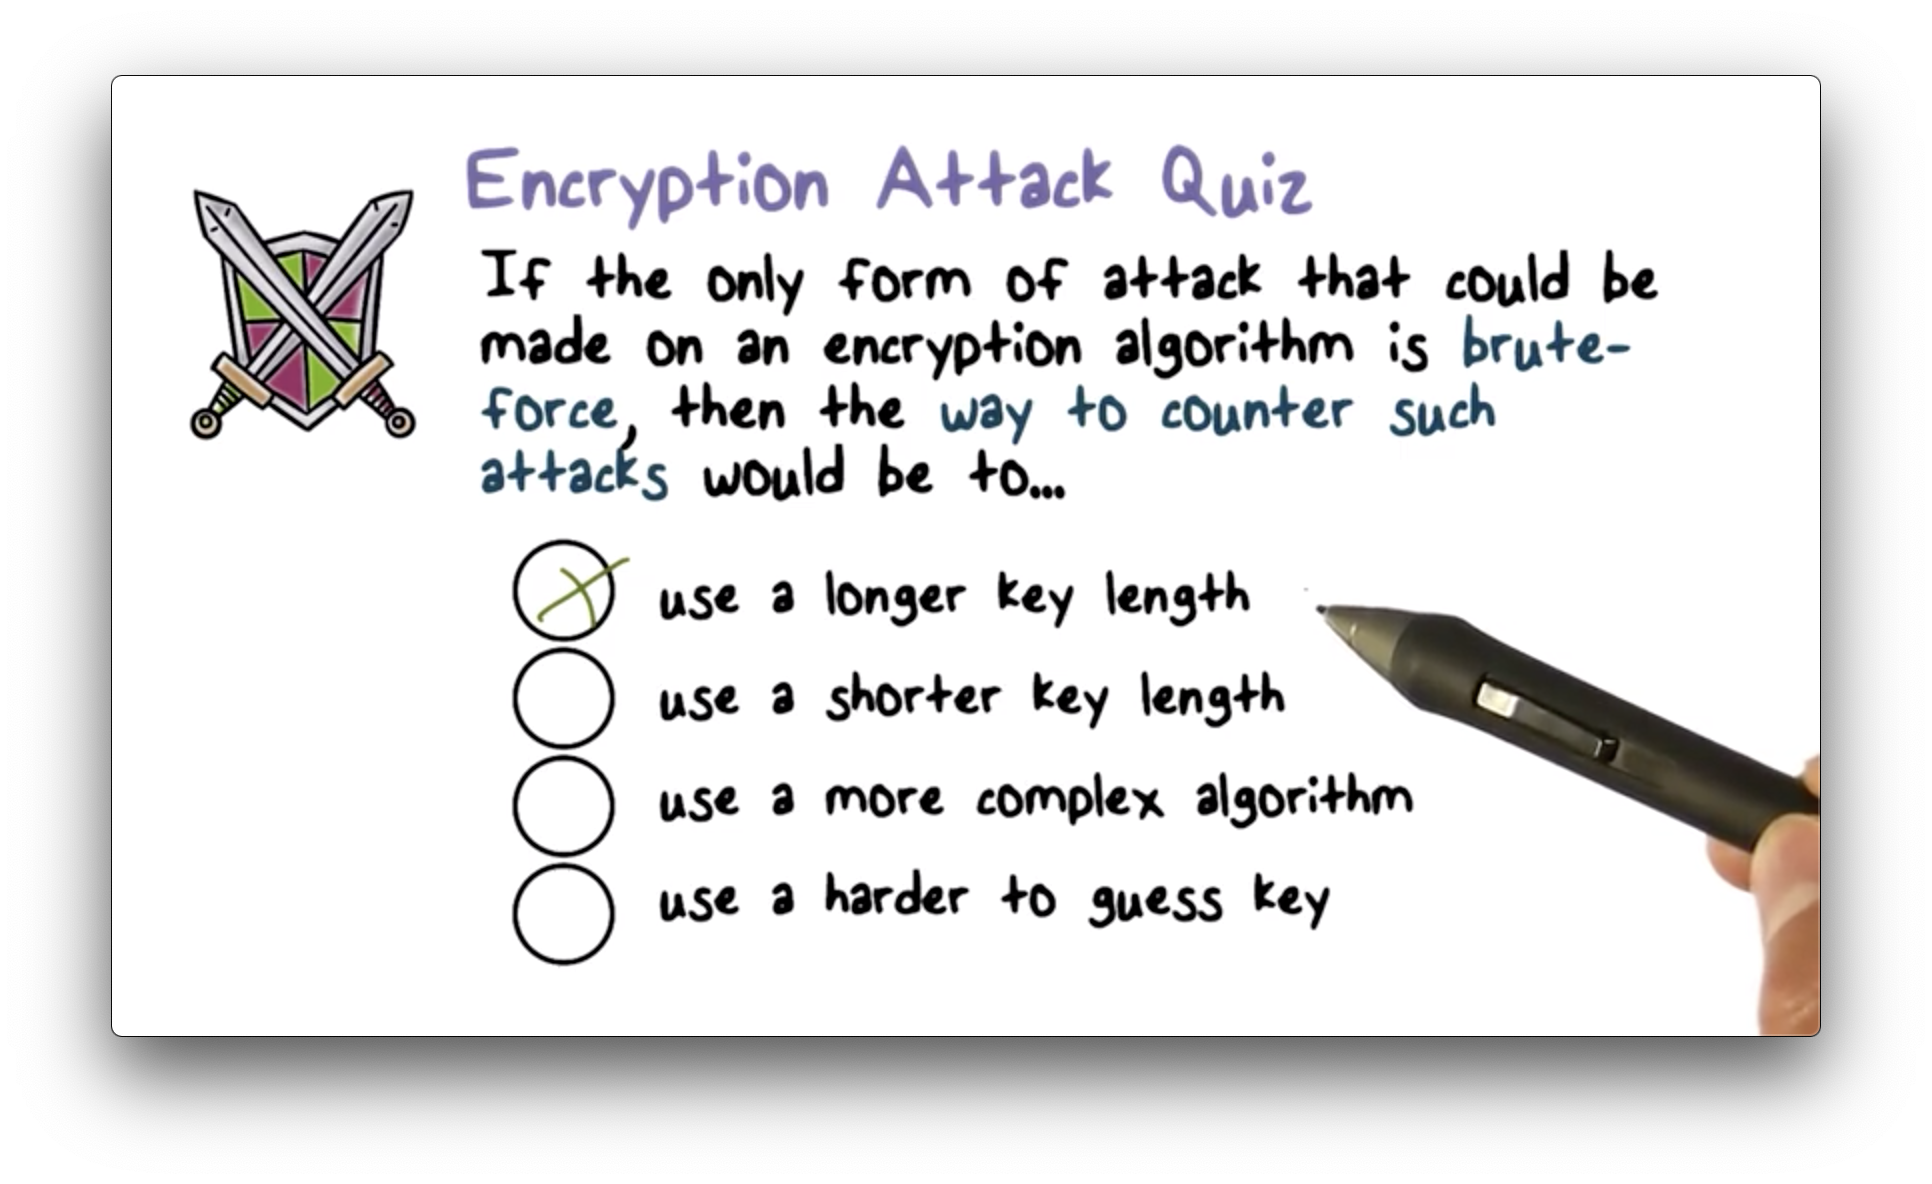 Encryption Attack Quiz
If the only form of attack that could be
made on an encryption algorithm is brute-
force, then the way to counter such
attacks would be to...
use a longer key length
use a shorter key length
use a more complex algorithm
use a harder to guess key